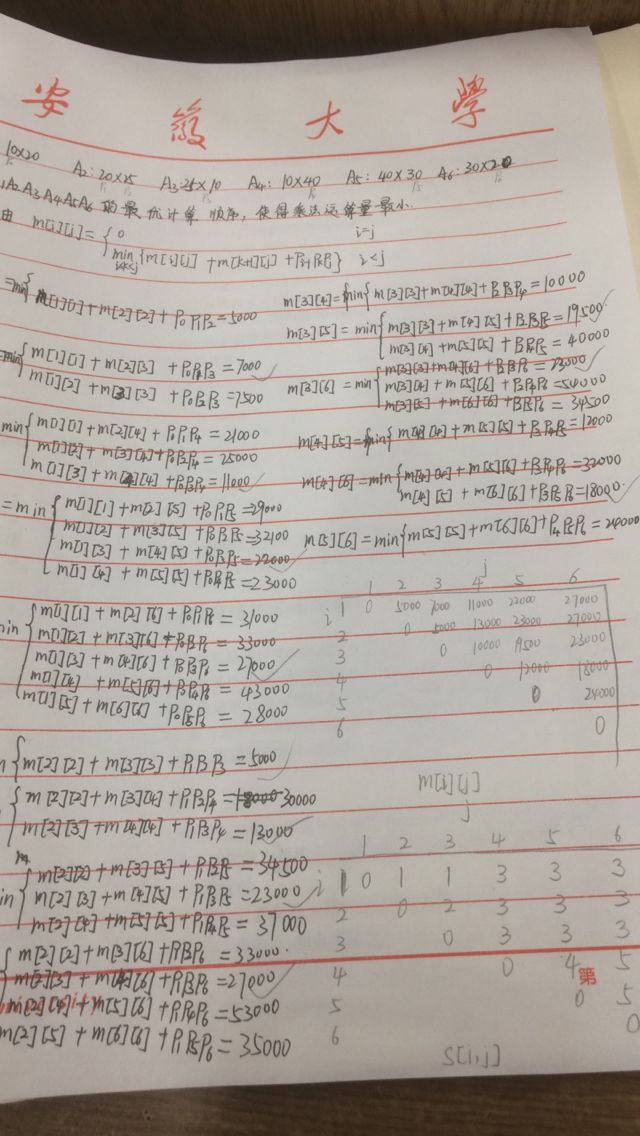 安徽大學
10×20 A2:20×25 A3:25×10 A4:10×40 A5:40×30 A6:30×20
A2A3A4A5A6 的最优计算顺序,使得乘法运算量最小.
由 m[i][j]= { 0 i=j
min {m[i][j] + m[k+1][j] + Pi-1PkPj} i<j
m[1][1]+m[2][2]+P0P1P2=5000
m[1][1]+m[2][3]+P0P1P3=7000
m[1][2]+m[3][3]+P0P2P3=7500
min{m[1][1]+m[2][4]+P0P1P4=21000
m[1][2]+m[3][4]+P0P2P4=25000
m[1][3]+m[4][4]+P0P3P4=11000
=min{m[1][1]+m[2][5]+P0P1P5=29000
m[1][2]+m[3][5]+P0P2P5=32100
m[1][3]+m[4][5]+P0P3P5=22000
m[1][4]+m[5][5]+P0P4P5=23000
min{m[1][1]+m[2][6]+P0P1P6=31000
m[1][2]+m[3][6]+P0P2P6=33000
m[1][3]+m[4][6]+P0P3P6=27000
m[1][4]+m[5][6]+P0P4P6=43000
m[1][5]+m[6][6]+P0P5P6=28000
{m[2][2]+m[3][3]+P1P2P3=5000
{m[2][2]+m[3][4]+P1P2P4=30000
m[2][3]+m[4][4]+P1P3P4=13000
m[2][2]+m[3][5]+P1P2P5=34500
m[2][3]+m[4][5]+P1P3P5=23000
m[2][4]+m[5][5]+P1P4P5=37000
{m[2][2]+m[3][6]+P1P2P6=33000
m[2][3]+m[4][6]+P1P3P6=27000
m[2][4]+m[5][6]+P1P4P6=53000
m[2][5]+m[6][6]+P1P5P6=35000
m[3][4]=min{m[3][3]+m[4][4]+P2P3P4=10000
m[3][5]=min{m[3][3]+m[4][5]+P2P3P5=19500
m[3][4]+m[5][5]+P2P4P5=40000
m[3][6]=min{m[3][3]+m[4][6]+P2P3P6=23000
m[3][4]+m[5][6]+P2P4P6=54000
m[3][5]+m[6][6]+P2P5P6=34500
m[4][5]=min{m[4][4]+m[5][5]+P3P4P5=12000
m[4][6]=min{m[4][4]+m[5][6]+P3P4P6=32000
m[4][5]+m[6][6]+P3P5P6=18000
m[5][6]=min{m[5][5]+m[6][6]+P4P5P6=24000
j
1 2 3 4 5 6
i 1 0 5000 7000 11000 22000 27000
2 0 5000 13000 23000 27000
3 0 10000 19500 23000
4 0 12000 18000
5 0 24000
6 0
m[i][j]
j
1 2 3 4 5 6
i 1 0 1 1 3 3 3
2 0 2 3 3 3
3 0 3 3 3
4 0 4 5
5 0 5
6 0
第
S[i,j]